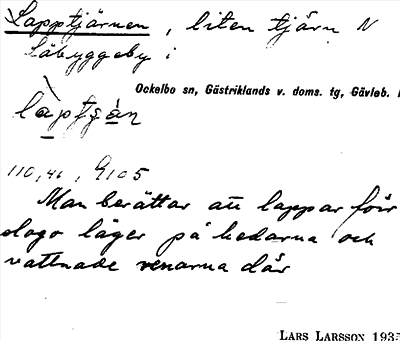 Lapptjärnen, liten tjärn N
Säbyggeby i
Ockelbo sn, Gästriklands v. doms. tg, Gävleb.
110,46, 9105
Man berättar att lappar förr
slogo läger på hedarna och
vattnade renarna där
LARS LARSSON 1935